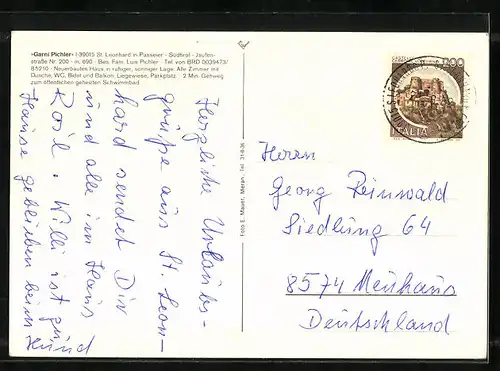 »Garni Pichler« I-39015 St. Leonhard in Passeier - Südtirol - Jaufen-
straße Nr. 200 - m. 690 - Bes. Fam. Luis Pichler - Tel. von BRD 0039473/
85210 - Neuerbautes Haus in ruhiger, sonniger Lage. Alle Zimmer mit
Dusche, WC, Bidet und Balkon, Liegewiese, Parkplatz. 2 Min. Gehweg
zum öffentlichen geheizten Schwimmbad.
Herzliche Urlaubs-
grüße aus St. Leon-
hard sendet Dir
und alle im Haus
Rosl. Willi ist zu
Hause geblieben beim
Hund
Foto E. Mauer, Meran, Tel.
ITALIA
Herrn
Georg Reinwald
Siedlung 64
8574 Neuhaus
Deutschland